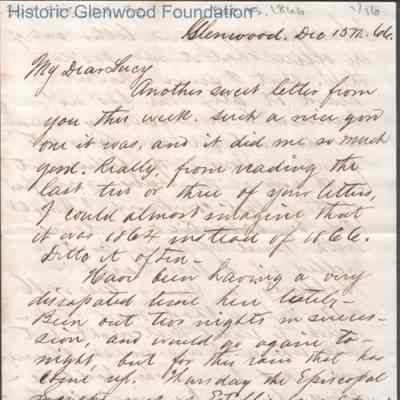 Historic Glenwood Foundation
Glenwood. Dec 15th. 66.
My Dear Lucy
Another sweet letter from
you this week. Such a nice good
one it was, and it did me so much
good. Really, from reading the
last two or three of your letters,
I could almost imagine that
it was 1864 instead of 1866.
Ditto it often -
Have been having a very
dissapated time here lately -
Been out two nights in succes-
sion, and would go again to-
night, but for this rain that has
come up. Thursday the Episcopal